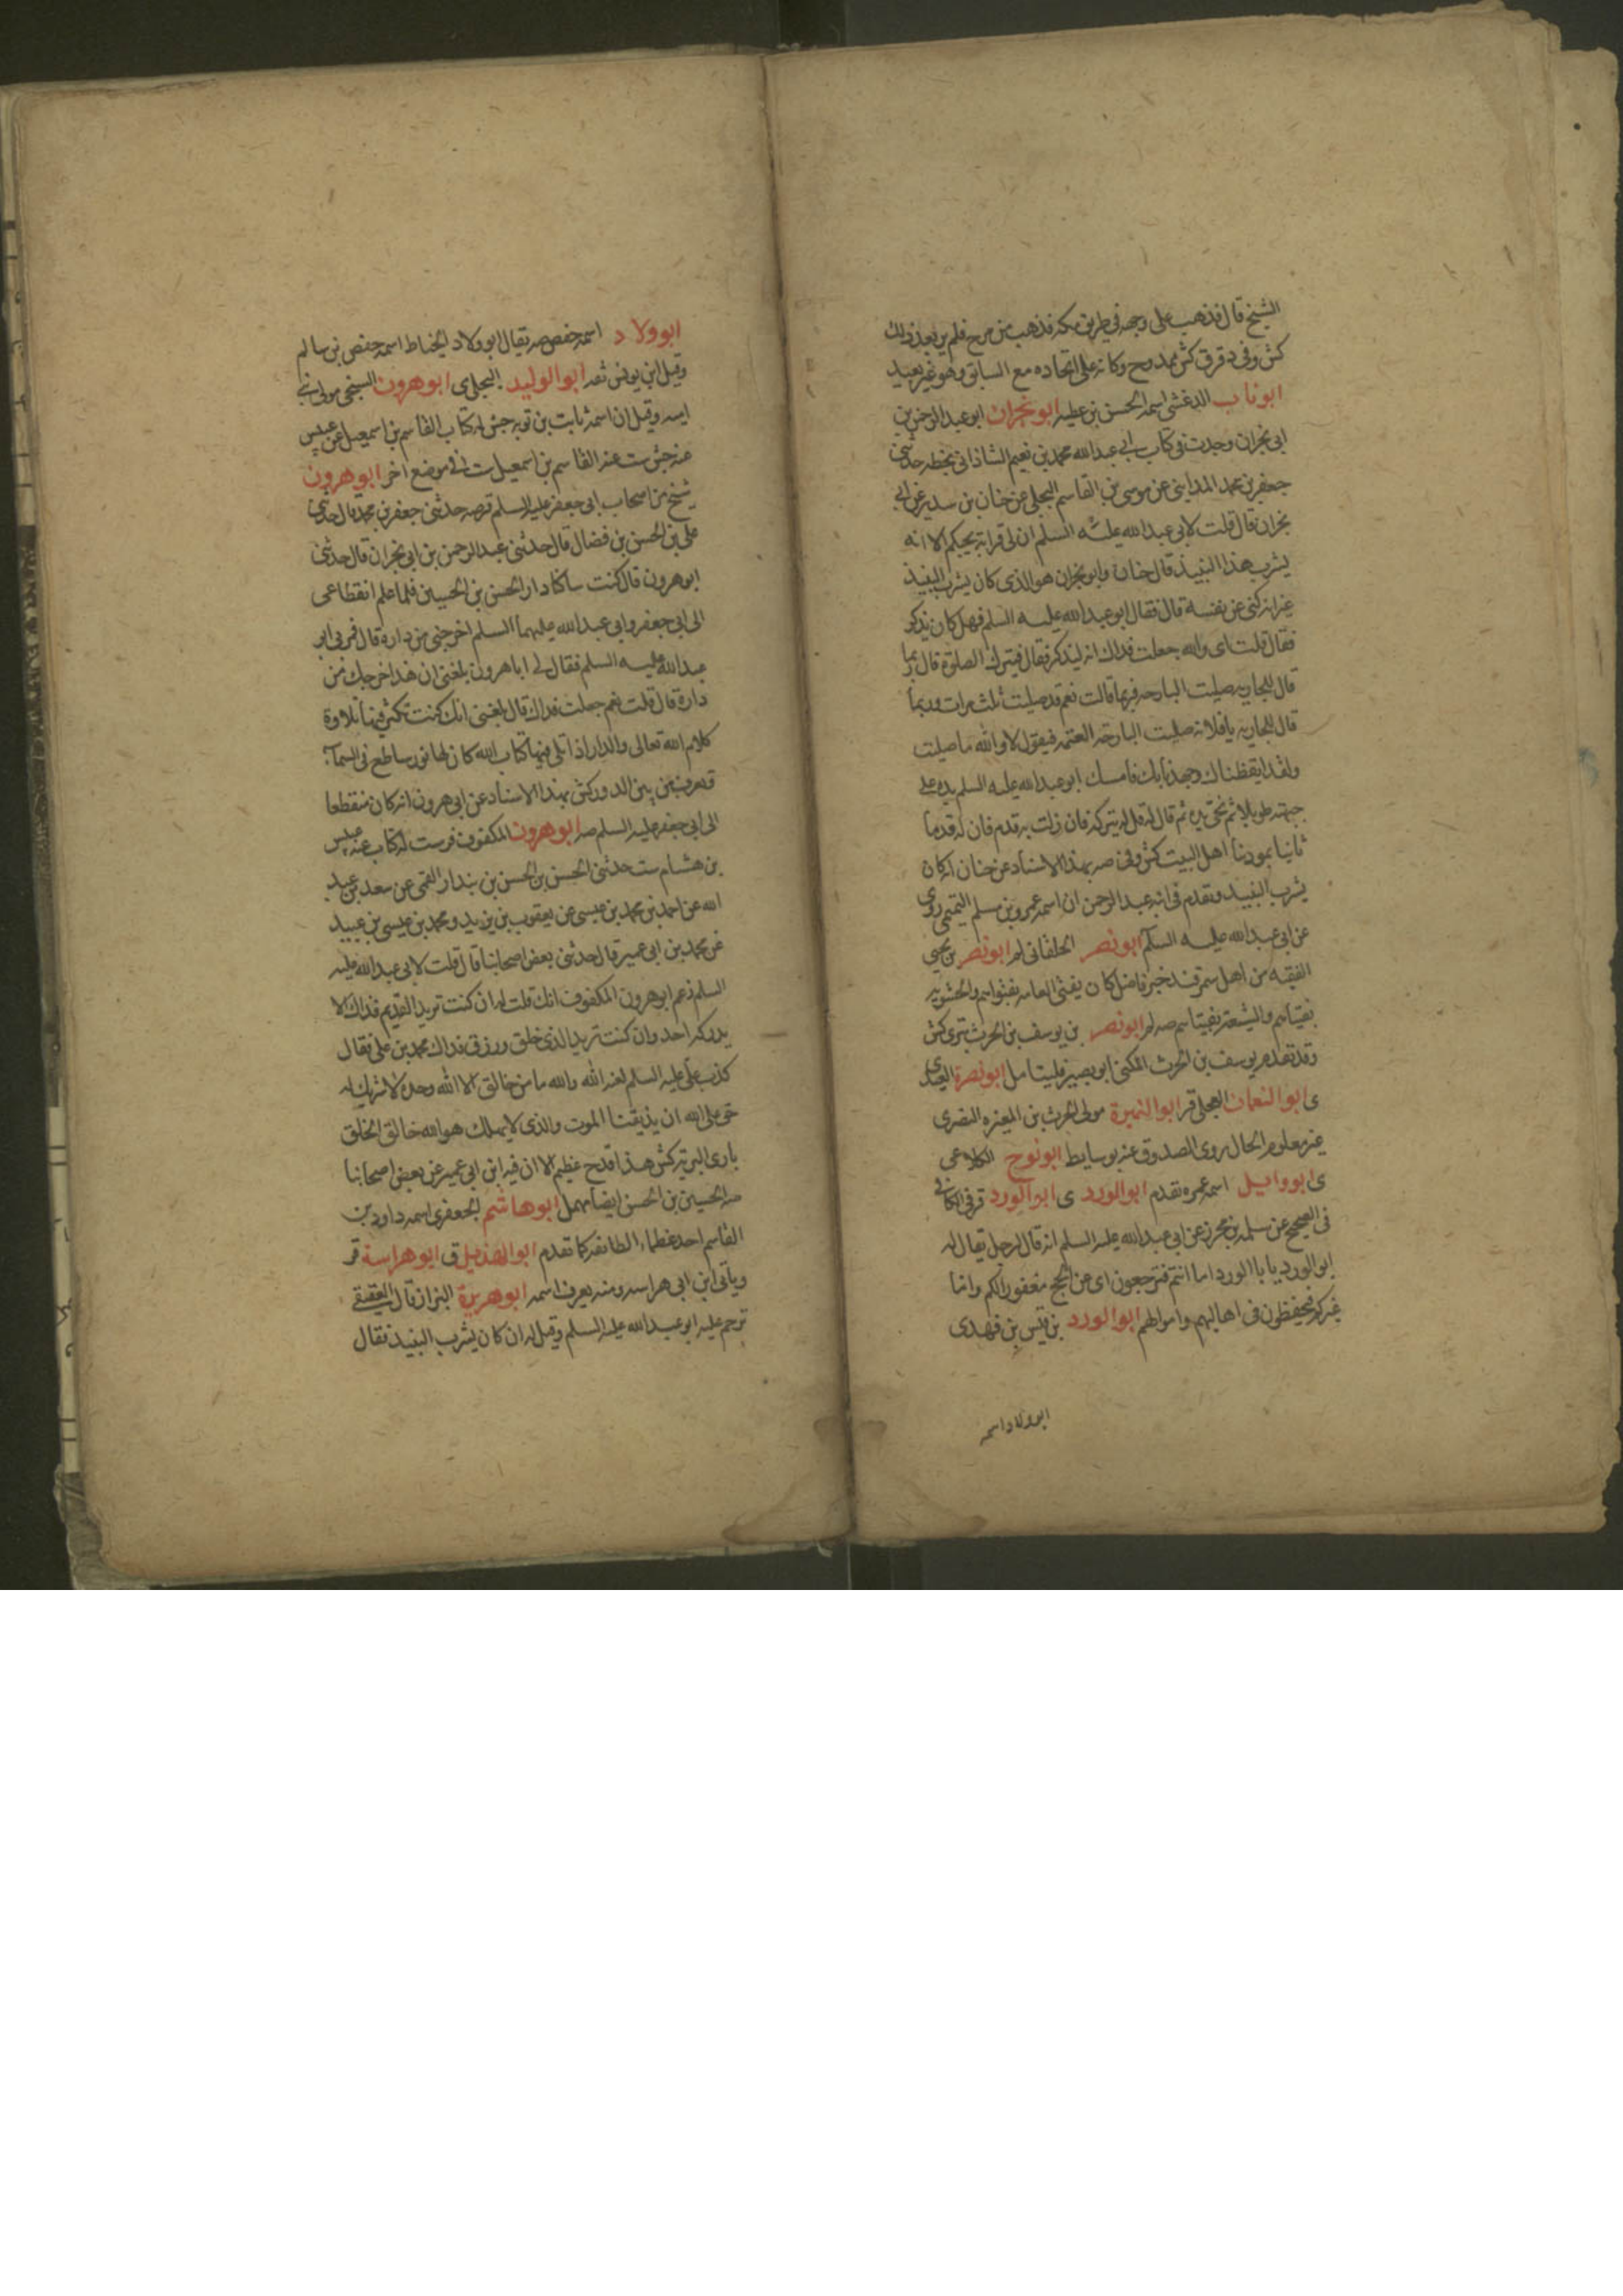 الشيخ قال فذهب على وجهه في طريق مكه فذهب من مرح فلم ير بعد ذلك
كش وفي د قر ق كش ممدوح وكانه على اتحاده مع السابق وهو غير بعيد
ابوناب الدغشي اسمه الحسن بن عطيه ابو نجران ابو عبد الرحمن بن
ابي نجران وجدت في كتاب ابي عبد الله محمد بن نعيم الشاذاني بخطه حدثني
جعفر بن محمد المدايني عن موسى بن القاسم البجلي عن حنان بن سدير عن ابي
نجران قال قلت لابي عبد الله عليه السلم ان لي قرابة يحبكم الا انه
يشرب هذا النبيذ قال حنان وابو نجران هو الذي كان يشرب النبيذ
غير انه كنى عن نفسه قال فقال ابو عبد الله عليه السلم فهل كان يذكر
فقال قلت اي والله جعلت فداك انه ليذكر قال فيترك الصلوة قال ربما
قال للجاريه صليت البارحه فربما قالت نعم قد صليت ثلث مرات وربما
قال للجاريه يا فلانه صليت البارحه العتمه فيقول لا والله ما صليت
ولقد ايقظناك وجهدنا بك فامسك ابو عبد الله عليه السلم يده على
جبهته طويلا ثم نحى يده ثم قال له قل له يتركه فان زلت به قدم فان له قدما
ثانيا بمودتنا اهل البيت كش وفي صه بهذا الاسناد عن حنان انه كان
يشرب النبيذ وتقدم في ابنه عبد الرحمن ان اسمه عمرو بن مسلم التميمي روى
عن ابي عبد الله عليه السلم ابو نصر الخلقاني لم ابو نصر بن يحيى
الفقيه من اهل سمرقند خير فاضل كان يفتي العامه بفتواهم والحشويه
بفتياهم والشيعه بفتياهم صه لم ابو نصر بن يوسف بن الحرث بتري كش
وقد تقدم يوسف بن الحرث المكنى ابو بصير فليتامل ابو نصرة العبدي
ي ابو النعمان العجلي قر ابو النميرة مولى الحرث بن المغيره النصري
غير معلوم الحال روى الصدوق عنه بوسايط ابونوح الكلاعي
ي ابو وايل اسمه عمره تقدم ابو الورد ي ابو الورد قر في الكافي
في الصحيح عن سلمه بن محرز عن ابي عبد الله عليه السلم انه قال لرجل يقال له
ابو الورد يا با الورد اما انتم فترجعون اي عن الحج مغفورا لكم واما
غيركم فيحفظون في اهاليهم واموالهم ابو الورد بن قيس بن فهد ي
ابو ولاد اسمه
ابو ولاد اسمه حفص صه يقال ابو ولاد الحناط اسمه حفص بن سالم
وقيل ابن يونس ثقه ابو الوليد البجلي ي ابو هرون السنجي مولى بني
اميه وقيل ان اسمه ثابت بن توبه جش له كتاب القاسم بن اسمعيل عن عبيس
عنه جش ست عنه القاسم بن اسمعيل ست في موضع اخر ابو هرون
شيخ من اصحاب ابي جعفر عليه السلم قر صه حدثني جعفر بن محمد قال حدثني
علي بن الحسن بن فضال قال حدثني عبد الرحمن بن ابي نجران قال حدثني
ابو هرون قال كنت ساكنا دار الحسن بن الحسين فلما علم انقطاعي
الى ابي جعفر وابي عبد الله عليهما السلم اخرجني من داره قال فمر بي ابو
عبد الله عليه السلم فقال لي ابا هرون بلغني ان هذا اخرجك من
داره قال قلت نعم جعلت فداك قال بلغني انك كنت تكثر فيها تلاوة
كلام الله تعالى والدار اذا تلي فيها كتاب الله كان لها نور ساطع في السماء
تعرف من بين الدور كش بهذا الاسناد عن ابي هرون انه كان منقطعا
الى ابي جعفر عليه السلم صه ابو هرون المكفوف قر ست له كتاب عنه عبيس
بن هشام ست حدثني الحسن بن الحسن بن بندار القمي عن سعد بن عبد
الله عن احمد بن محمد بن عيسى عن يعقوب بن يزيد ومحمد بن عيسى بن عبيد
عن محمد بن ابي عمير قال حدثني بعض اصحابنا قال قلت لابي عبد الله عليه
السلم زعم ابو هرون المكفوف انك قلت له ان كنت تريد القديم فذاك لا
يدركه احد وان كنت تريد الذي خلق ورزق فذاك محمد بن علي فقال
كذب علي عليه السلم لعنه الله والله ما من خالق الا الله وحده لا شريك له
حق على الله ان يذيقنا الموت والذي لا يهلك هو الله خالق الخلق
باري البريه كش هذا قدح عظيم الا ان فيه ابن ابي عمير عن بعض اصحابنا
منه الحسين بن الحسن ايضا مهمل ابو هاشم الجعفري اسمه داود بن
القاسم احد عظماء الطائفه كما تقدم ابو الهذيل ق ابو هراسة قر
وياتي ابن ابي هراسه ومنه يعرف اسمه ابو هريرة البزاز قال العقيقي
ترحم عليه ابو عبد الله عليه السلم وقيل له ان كان يشرب النبيذ فقال